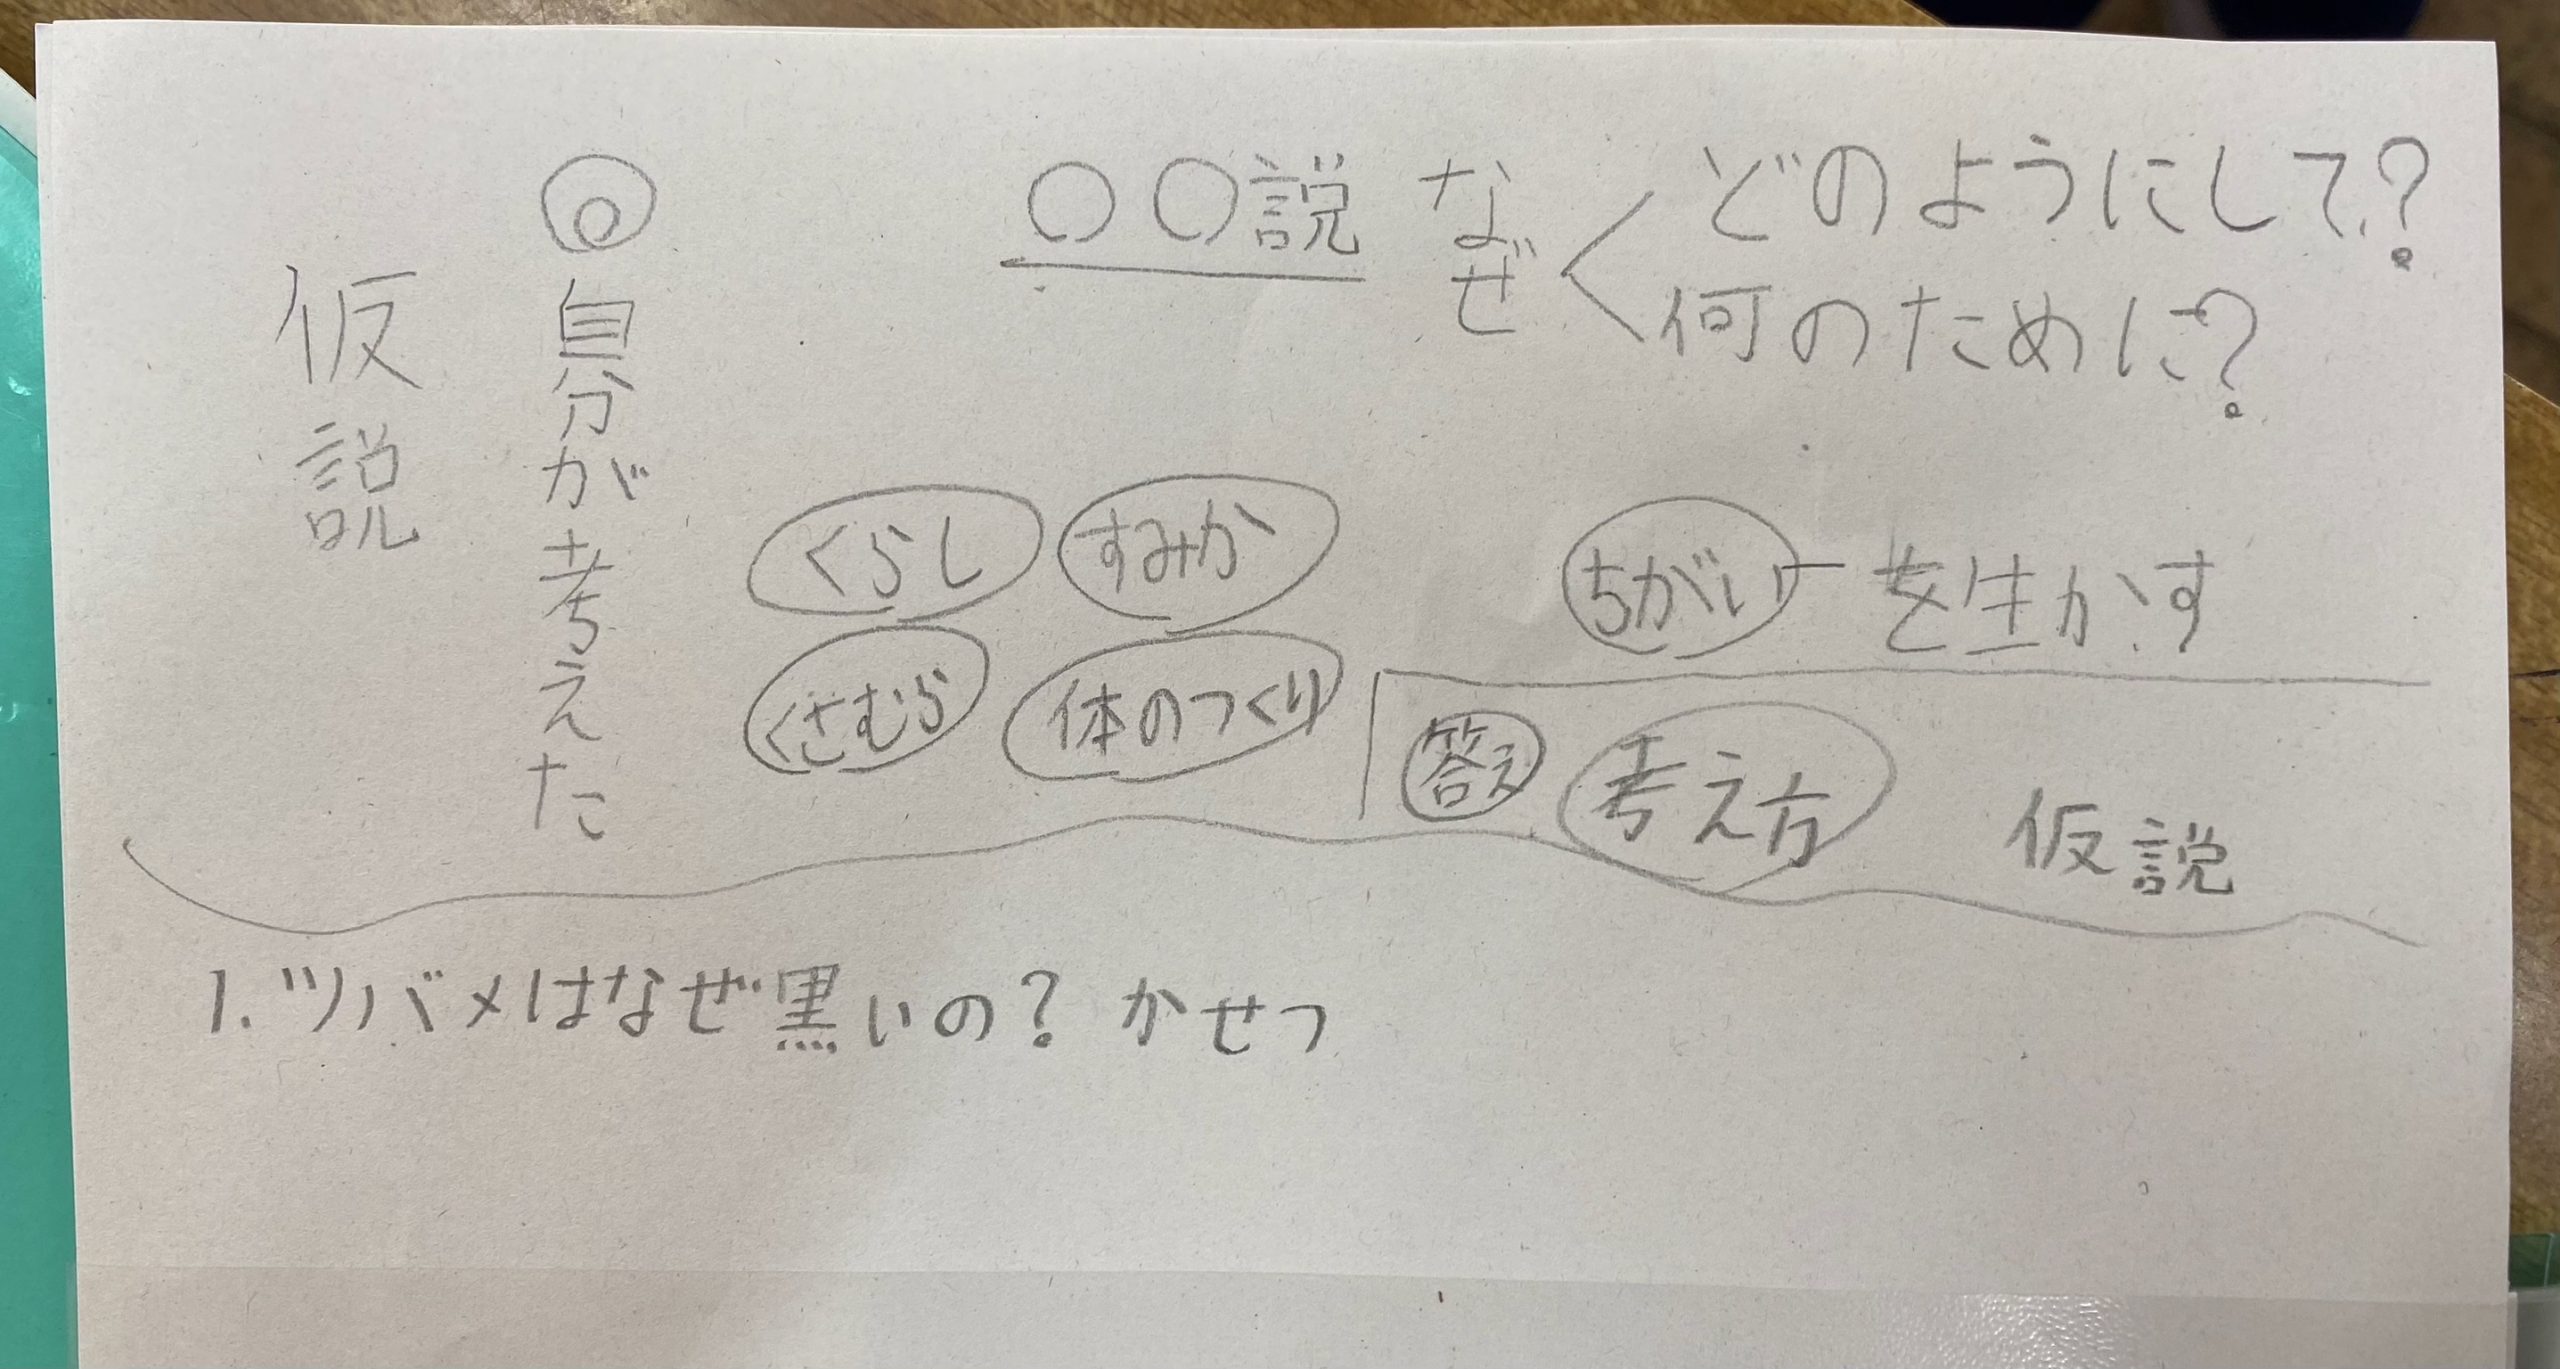 ◎自分が考えた
仮説
〇〇説
なぜ
どのようにして?
何のために?
くらし
すみか
くさむら
体のつくり
ちがい
を生かす
答え
考え方
仮説
1.ツバメはなぜ黒いの? かせつ